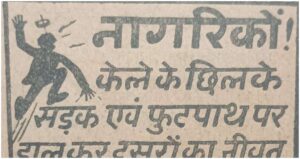 नागरिकों!
केले के छिलके
सड़क एवं फुटपाथ पर
डाल कर दूसरों का जीवन